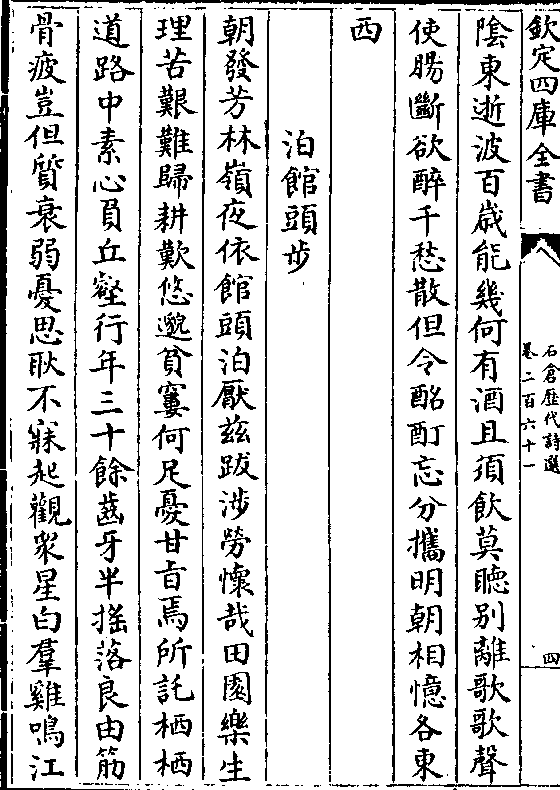 欽定四庫全書
石倉歷代詩選
卷二百六十一
四
陰東逝波百歲能幾何有酒且須飲莫聽别離歌歌聲
使腸斷欲醉千愁散但令酩酊忘分攜明朝相憶各東
西
泊館頭步
朝發芳林嶺夜依館頭泊厭兹跋涉勞懷哉田園樂生
理苦艱難歸耕歎悠邈貧窶何足憂甘㫖焉所託栖栖
道路中素心負丘壑行年三十餘齒牙半揺落良由筋
骨疲豈但質衰弱憂思耿不寐起觀衆星白羣雞鳴江